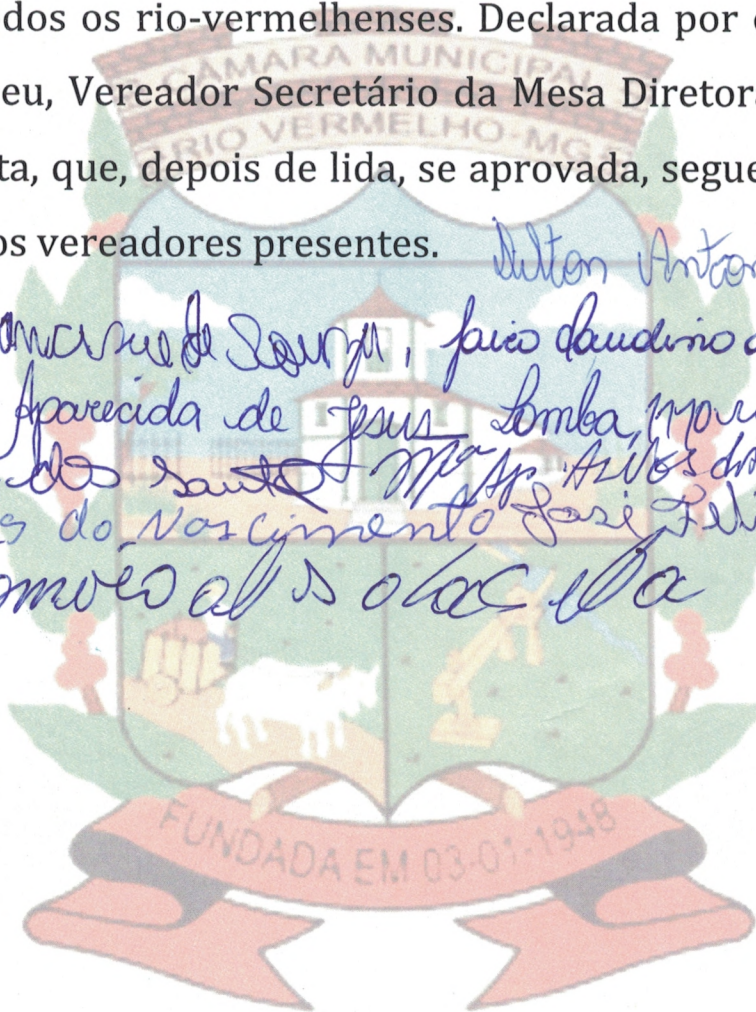 dos os rio-vermelhenses. Declarada por
eu, Vereador Secretário da Mesa Diretor
ta, que, depois de lida, se aprovada, segue
os vereadores presentes.
Anton
de Souza, Claudino
Aparecida de Jesus Lomba,
dos Santos Mª Ap. Alves dos
do Nascimento José
CÂMARA MUNICIPAL
RIO VERMELHO-MG
FUNDADA EM 03-01-1948